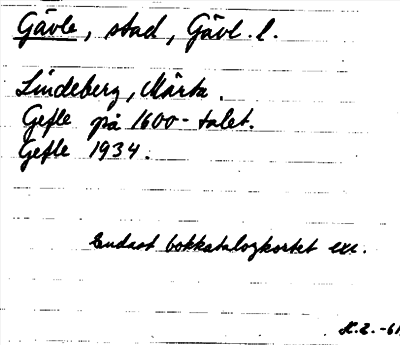 Gävle, stad, Gävl. l.
Lindeberg, Märta.
Gefle på 1600-talet.
Gefle 1934.
Endast bokkatalogkortet exc.
H.Z. -61